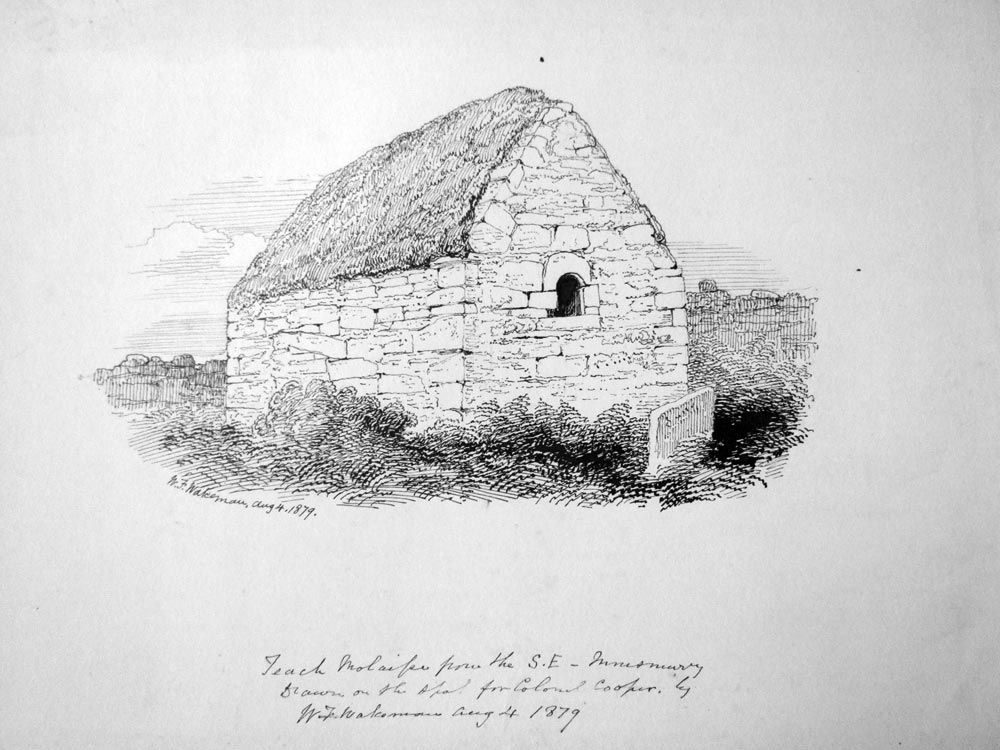 W.F. Wakeman, Aug 4. 1879.
Teach Molaisse from the S.E - Innismurry
Drawn on the spot for Colonel Cooper. by
W.F. Wakeman Aug 4 1879